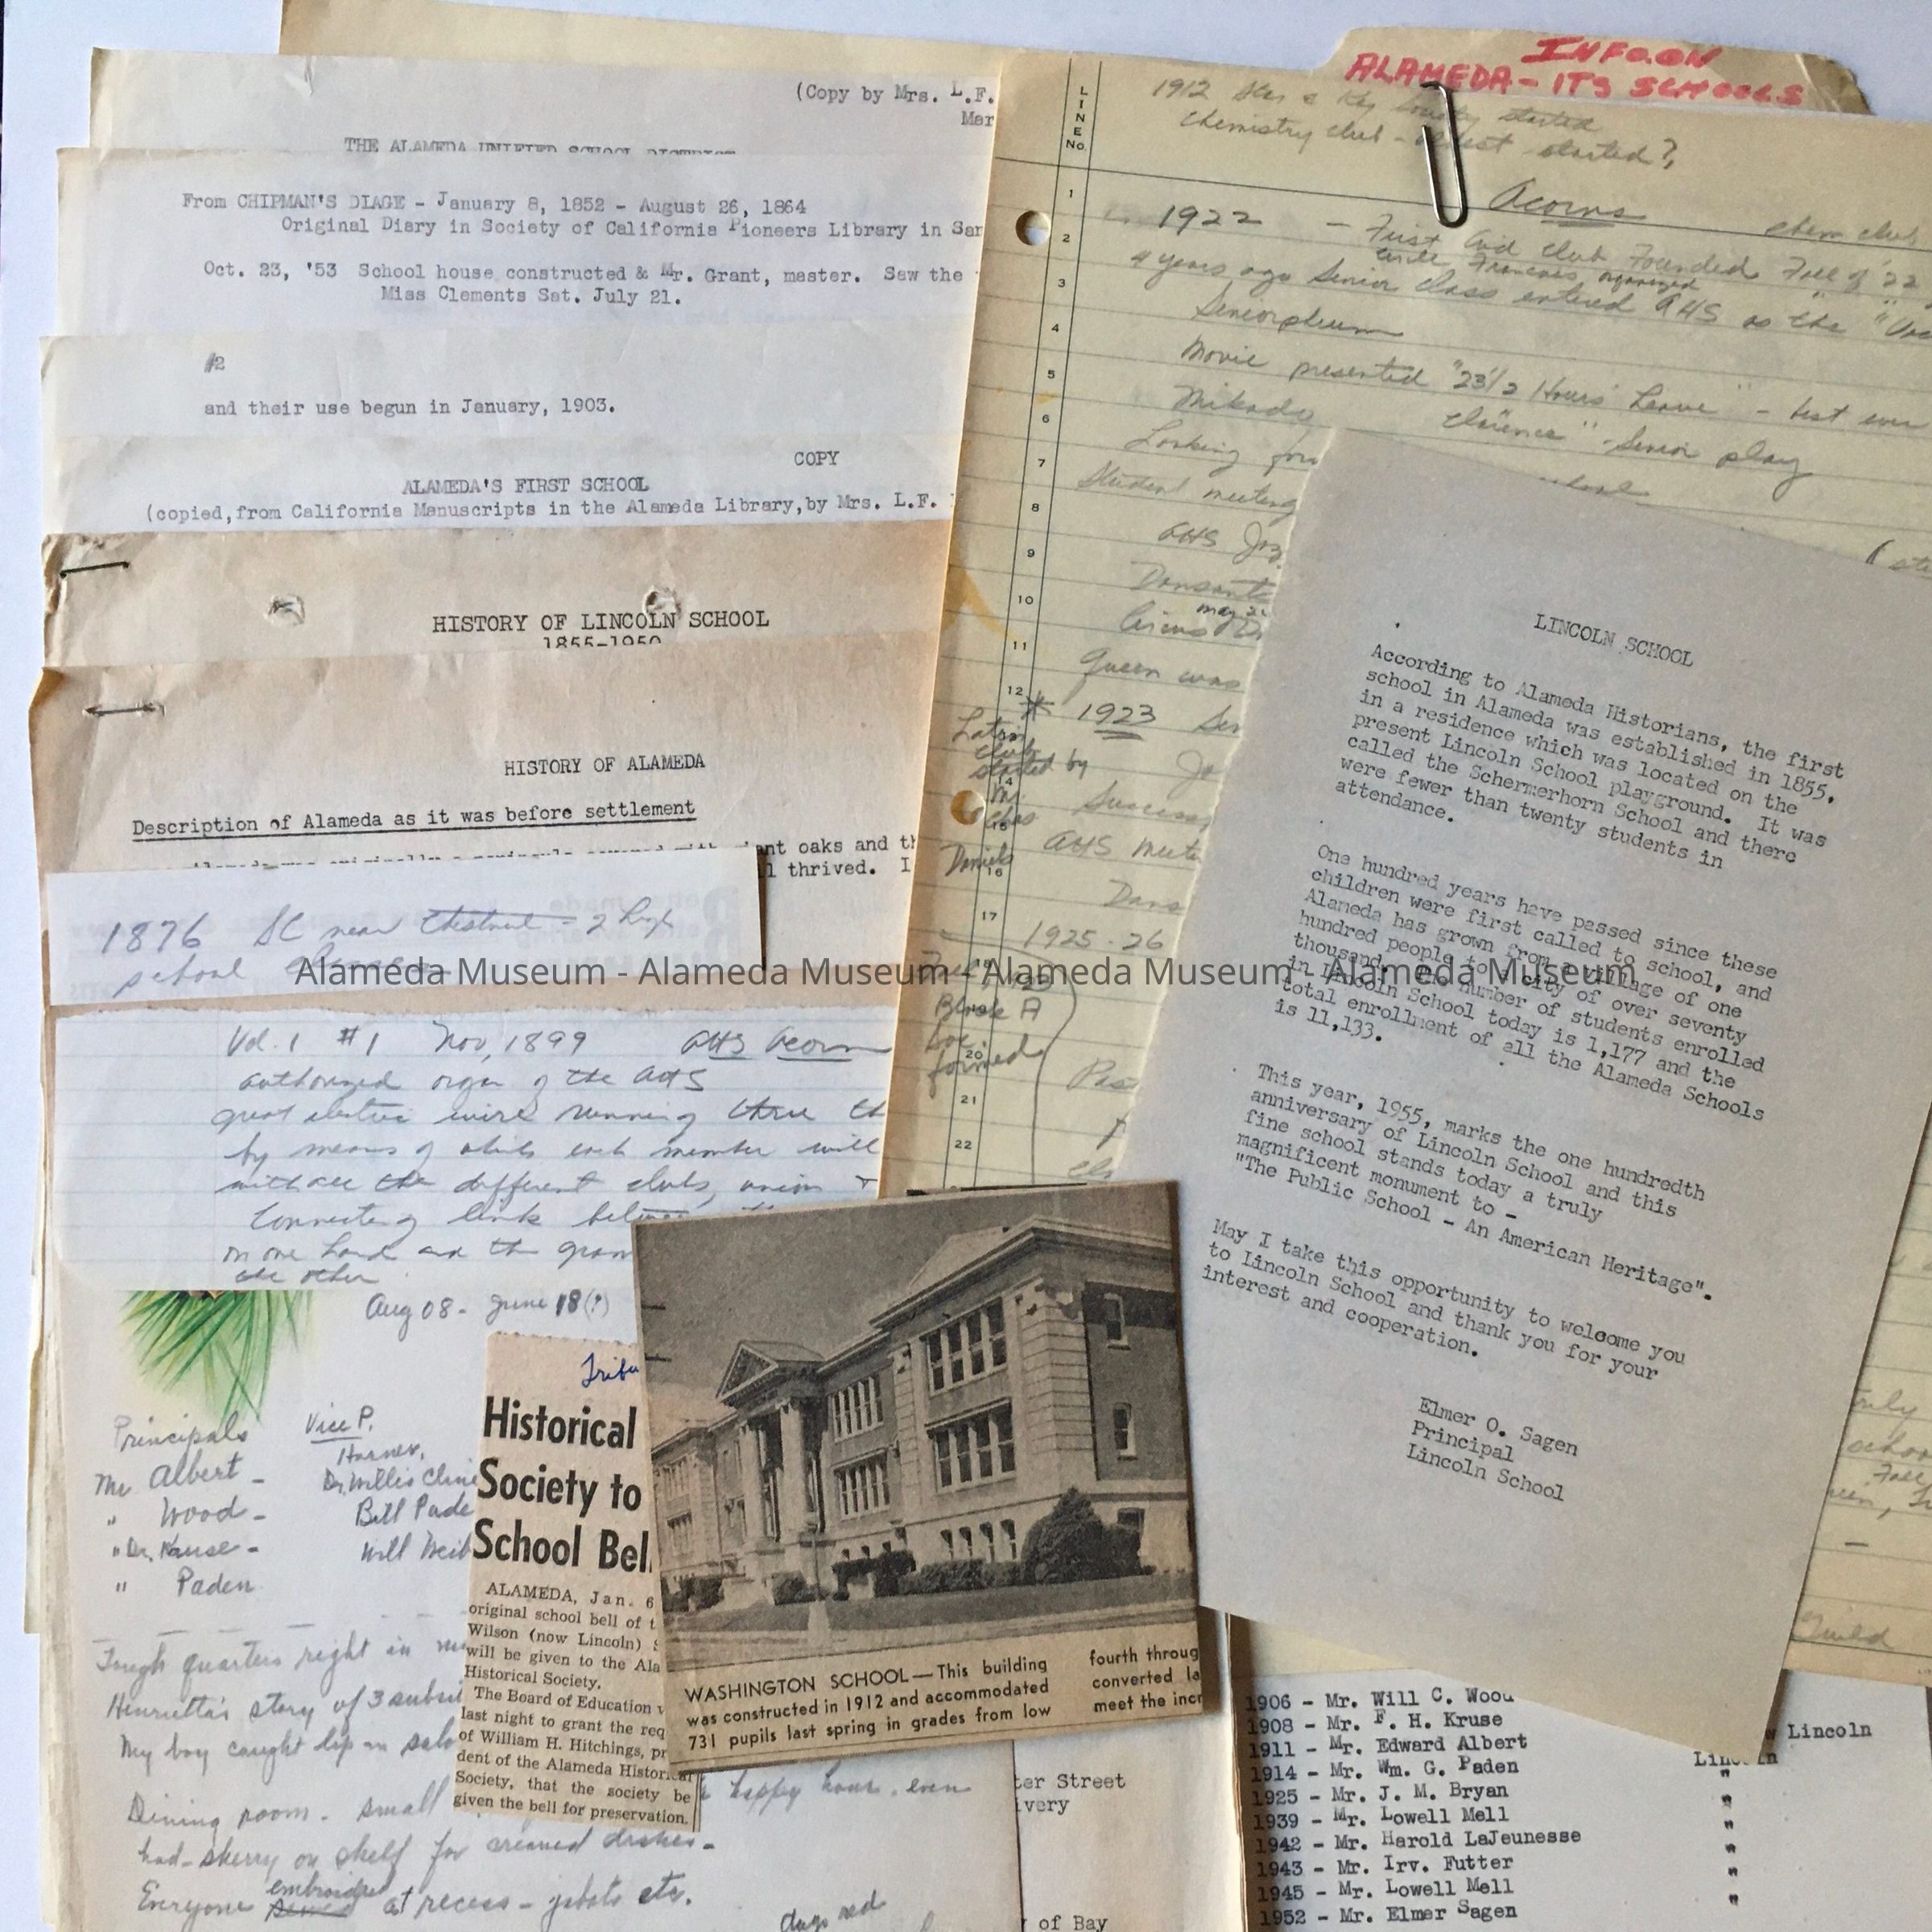 INFO ON
ALAMEDA - ITS SCHOOLS
(Copy by Mrs. L.F.
Mar
THE ALAMEDA UNIFIED SCHOOL DISTRICT
From CHIPMAN'S DIAGE - January 8, 1852 - August 26, 1864
Original Diary in Society of California Pioneers Library in San
Oct. 23, '53 School house constructed & Mr. Grant, master. Saw the
Miss Clements Sat. July 21.
#2
and their use begun in January, 1903.
COPY
ALAMEDA'S FIRST SCHOOL
(copied,from California Manuscripts in the Alameda Library,by Mrs. L.F.
HISTORY OF LINCOLN SCHOOL
1855-1950
HISTORY OF ALAMEDA
Description of Alameda as it was before settlement
ant oaks and th
l thrived. I
1876 SC near Chestnut - 2 high
school
Alameda Museum - Alameda Museum - Alameda Museum - Alameda Museum
Vol. 1 #1 Nov, 1899 AHS Acorn
authorized organ of the AHS
great electric wire running thru th
by means of which each member will
with all the different clubs, union
Connecting link between
on one hand and the gram
the other
Aug 08 - June 18(?)
Principals Vice P.
Harner,
Mr Albert - Dr. Willis Cline
" Wood - Bill Pade
" Dr. Kruse - Will Neil
" Paden
Tough quarters right in
Henrietta's story of 3
My boy caught lip on
happy hour, even
Dining room - small
had - sherry on shelf for creamed dishes -
Everyone embroidered at recess - jabots etc.
days red
Tribu
Historical
Society to
School Bel
ALAMEDA, Jan. 6
original school bell of t
Wilson (now Lincoln) S
will be given to the Ala
Historical Society.
The Board of Education v
last night to grant the req
of William H. Hitchings, pr
dent of the Alameda Historical
Society, that the society be
given the bell for preservation.
WASHINGTON SCHOOL—This building
was constructed in 1912 and accommodated
731 pupils last spring in grades from low
fourth throug
converted la
meet the incr
LINE No.
1912 Star & Key Society started
Chemistry club - started?
Acorns
chem club
1 1922 - First Aid club Founded Fall of '22
2
4 years ago Senior class entered AHS as the
3
Seniorpleum
4
Movie presented "23 1/2 Hours' Leave" - best ever
5
Mikado "Clarence" - Senior play
6
Looking for
7
Student meeting
8
AHS
9
Dansant
10
Circus
11
Queen was
12
* 1923 Sen
Latin
club
started by
14
Mr.
15
Success
16
Daniels
AHS meet
Dans
17
1925-26
18
Block A
Soc.
formed
20
21
22
LINCOLN SCHOOL
According to Alameda Historians, the first
school in Alameda was established in 1855,
in a residence which was located on the
present Lincoln School playground. It was
called the Schermerhorn School and there
were fewer than twenty students in
attendance.
One hundred years have passed since these
children were first called to school, and
Alameda has grown from a village of one
hundred people to a city of over seventy
thousand. The number of students enrolled
in Lincoln School today is 1,177 and the
total enrollment of all the Alameda Schools
is 11,133.
This year, 1955, marks the one hundredth
anniversary of Lincoln School and this
fine school stands today a truly
magnificent monument to -
"The Public School - An American Heritage".
May I take this opportunity to welcome you
to Lincoln School and thank you for your
interest and cooperation.
Elmer O. Sagen
Principal
Lincoln School
Guild
ter Street
very
of Bay
1906 - Mr. Will C. Wood
1908 - Mr. F. H. Kruse
w Lincoln
1911 - Mr. Edward Albert
Lincoln
1914 - Mr. Wm. G. Paden "
1925 - Mr. J. M. Bryan "
1939 - Mr. Lowell Mell "
1942 - Mr. Harold LaJeunesse "
1943 - Mr. Irv. Futter "
1945 - Mr. Lowell Mell "
1952 - Mr. Elmer Sagen